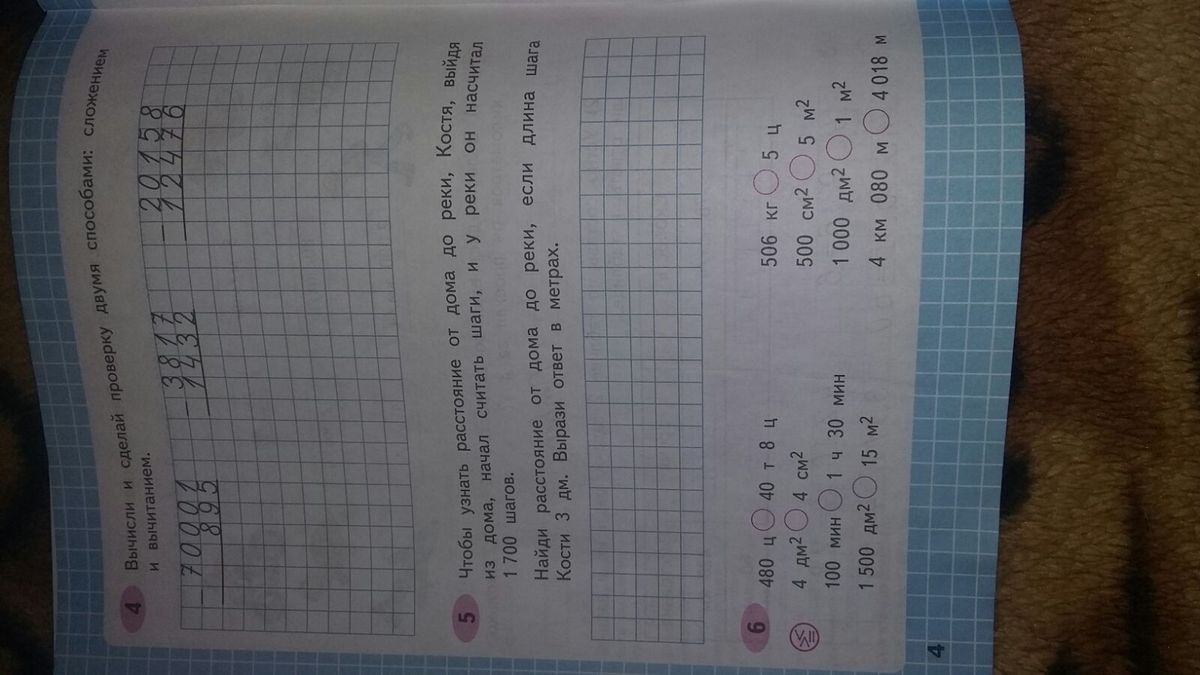 4 Вычисли и сделай проверку двумя способами: сложением
и вычитанием.
− 70001 − 3817 − 20158
895 1432 12476
5 Чтобы узнать расстояние от дома до реки, Костя, выйдя
из дома, начал считать шаги, и у реки он насчитал
1 700 шагов.
Найди расстояние от дома до реки, если длина шага
Кости 3 дм. Вырази ответ в метрах.
6 480 ц ○ 40 т 8 ц 506 кг ○ 5 ц
4 дм² ○ 4 см² 500 см² ○ 5 м²
100 мин ○ 1 ч 30 мин 1 000 дм² ○ 1 м²
1 500 дм² ○ 15 м² 4 км 080 м ○ 4 018 м
4